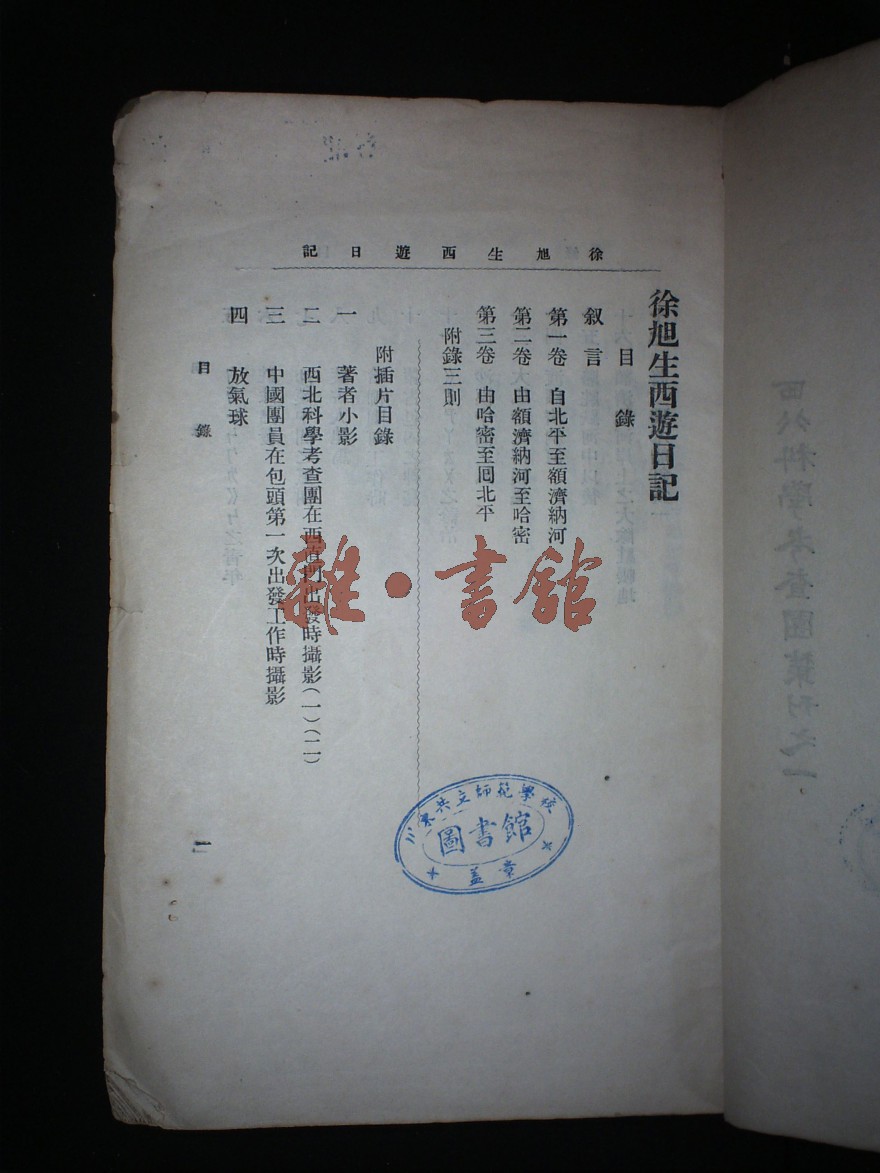 徐旭生西遊日記
徐旭生西遊日記
目錄
叙言
第一卷 自北平至額濟納河
第二卷 由額濟納河至哈密
第三卷 由哈密至囘北平
附錄三則
附插片目錄
一 著者小影
二 西北科學考查團在西直門出發時攝影(一)(二)
三 中國團員在包頭第一次出發工作時攝影
四 放氣球
目錄
一
雜·書館
川東共立師範學校
圖書館
蓋章
西北科學考查團叢刊之一